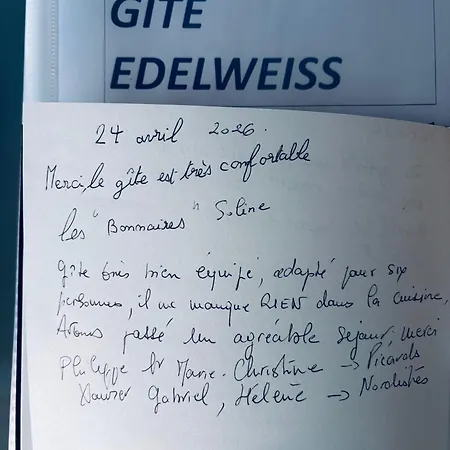 GITE
EDELWEISS
24 avril 2026.
Merci, le gîte est très confortable
les "Bonnaires" Soline
Gîte très bien équipé, adapté pour six
personnes, il ne manque RIEN dans la cuisine,
Avons passé un agréable séjour, merci
Philippe et Marie-Christine → Picards
Xavier Gabriel, Hélène → Nordistes